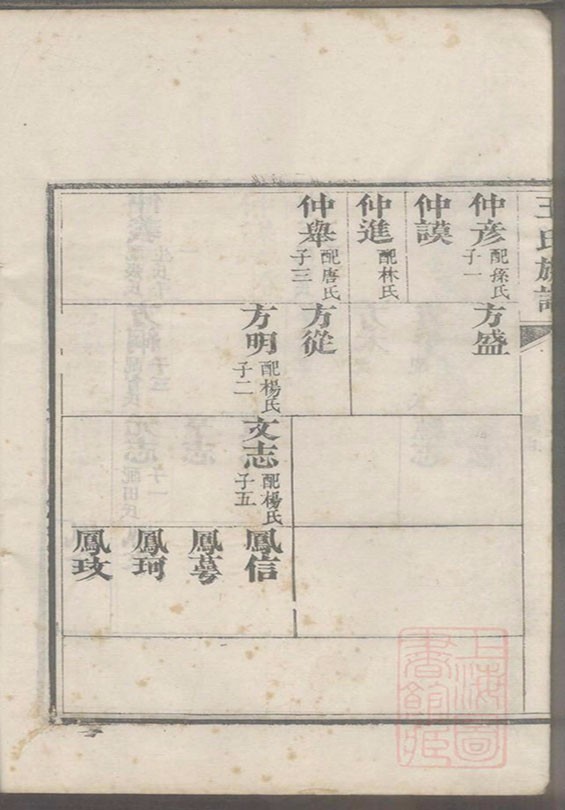 王氏族譜
仲彦 配孫氏 子一
方盛
仲謨
仲進 配林氏
仲舉 配唐氏 子三
方從
方明 配楊氏 子二
文志 配楊氏 子五
鳳信
鳳萼
鳳珂
鳳玫
上海圖書館藏